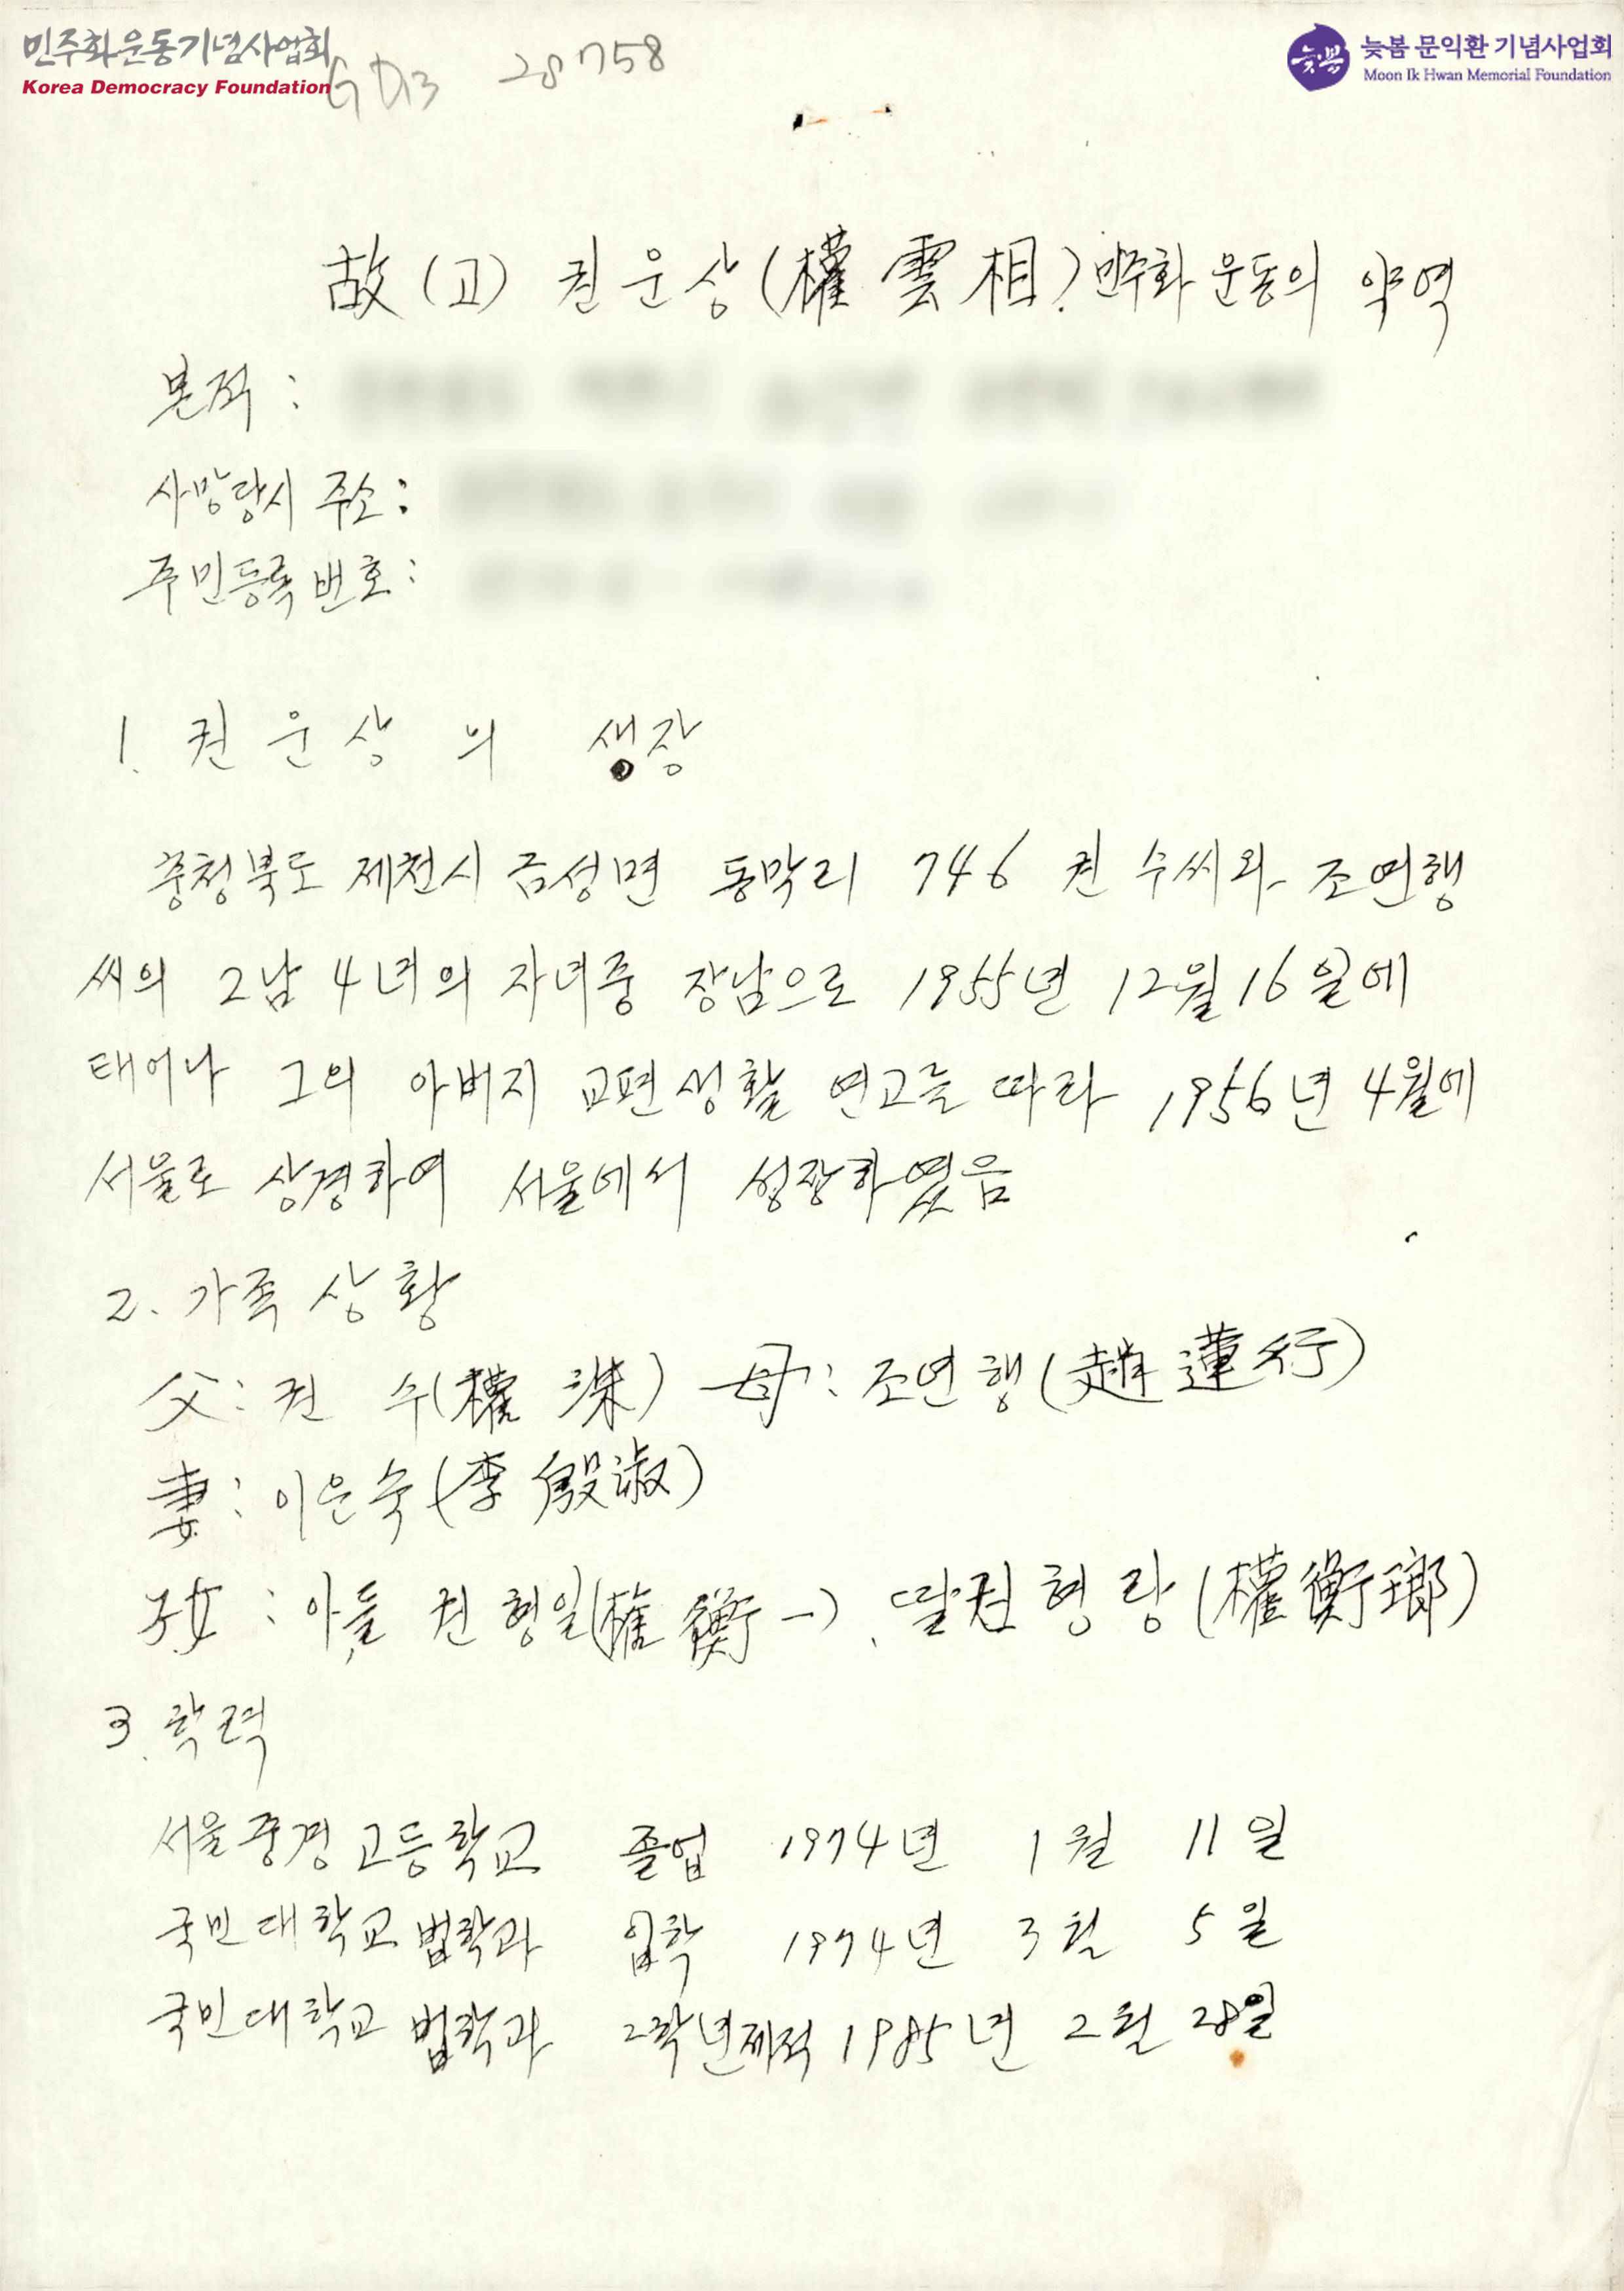 민주화운동기념사업회
Korea Democracy Foundation
28758
늦봄
늦봄 문익환 기념사업회
Moon Ik Hwan Memorial Foundation
故(고) 권운상(權雲相) 민주화 운동의 약력
본적 :
사망당시 주소 :
주민등록 번호 :
1. 권운상의 생장
충청북도 제천시 금성면 동막리 746 권 수씨와 조연행
씨의 2남 4녀의 자녀중 장남으로 1955년 12월 16일에
태어나 그의 아버지 교편생활 연고를 따라 1956년 4월에
서울로 상경하여 서울에서 성장하였음
2. 가족 상황
父 : 권 수(權 洙) 母 : 조연행(趙蓮行)
妻 : 이은숙(李殷淑)
子女 : 아들 권형일(權衡一), 딸 권형랑(權衡瑯)
3. 학력
서울중경고등학교 졸업 1974년 1월 11일
국민대학교 법학과 입학 1974년 3월 5일
국민대학교 법학과 2학년제적 1985년 2월 28일